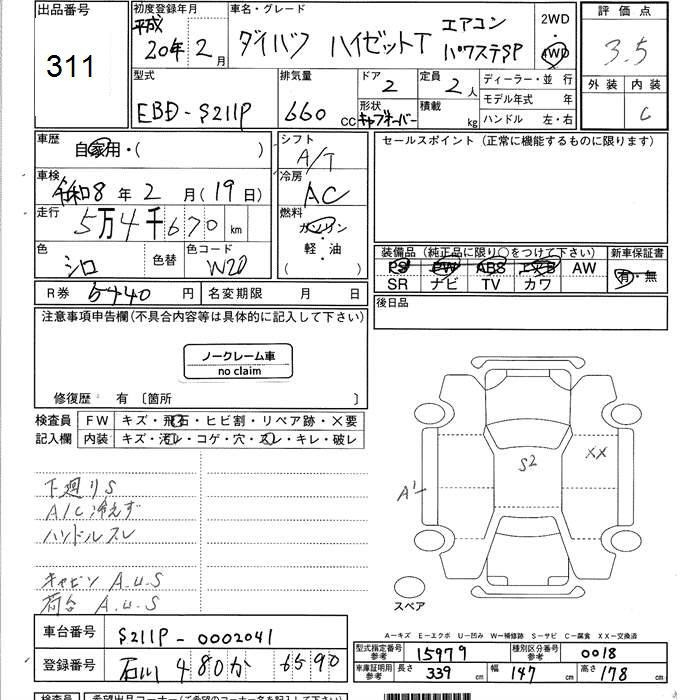 出品番号
311
初度登録年月
平成
20年2月
車名・グレード
ダイハツ ハイゼットT エアコン パワステSP
2WD
・
4WD
評価点
3.5
外装 内装
C
型式
EBD-S211P
排気量
660 cc
ドア
2
定員
2人
形状
キャブオーバー
積載
kg
ディーラー・並行
モデル年式 年
ハンドル 左・右
車歴
自家用・( )
シフト
A/T
車検
令和8年2月(19日)
冷房
AC
走行
5万4千670km
燃料
ガソリン
・
軽・油
( )
色
シロ
色替
色コード
W20
R券 5440円
名変期限 月 日
セールスポイント (正常に機能するものに限ります)
装備品 (純正品に限り○をつけて下さい)
新車保証書
PS PW ABS エアB AW
有・無
SR ナビ TV カワ
後日品
注意事項申告欄(不具合内容等は具体的に記入して下さい)
ノークレーム車
no claim
修復歴 有 〔箇所 〕
検査員
記入欄
FW キズ・飛石・ヒビ割・リペア跡・X要
内装 キズ・汚レ・コゲ・穴・スレ・キレ・破レ
下廻りS
A/C冷えず
ハンドルスレ
キャビン A.U.S
荷台 A.U.S
S2
XX
A1
スペア
A-キズ E-エクボ U-凹み W-補修跡 S-サビ C-腐食 XX-交換済
車台番号 S211P-0002041
登録番号 石川 480か 6590
型式指定番号
参考
15979
種別区分番号
参考
0018
車庫証明用
参考
長さ 339 cm
幅 147 cm
高さ 178 cm
検査員
希望出品コーナー(ご希望のコーナー名を記入して下さい)